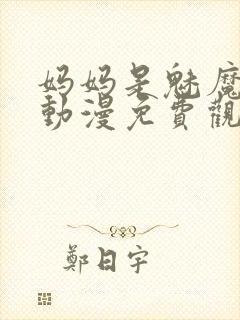 妈妈是魅魔
動漫免費觀
鄭日宇